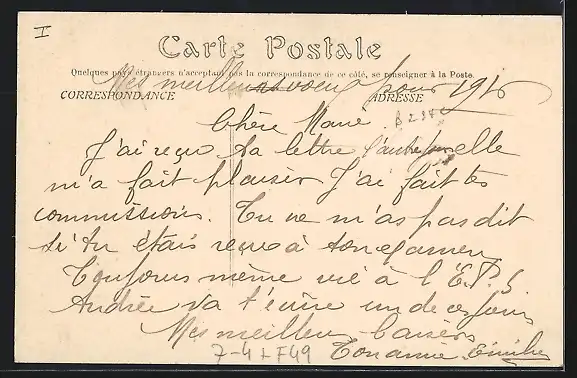 I
Carte Postale
Quelques pays étrangers n'acceptant pas la correspondance de ce côté, se renseigner à la Poste.
Mes meilleurs voeux pour 1910
CORRESPONDANCE ADRESSE
Chère Marie
J'ai reçu ta lettre l'autre jour elle
m'a fait plaisir J'ai fait tes
commissions. Tu ne m'as pas dit
si tu étais reçue à ton examen
Toujours même vie à l'E.P.S
Andrée va t'écrire un de ces jours
Mes meilleurs baisers
Ton amie Emilie
7-4+F49